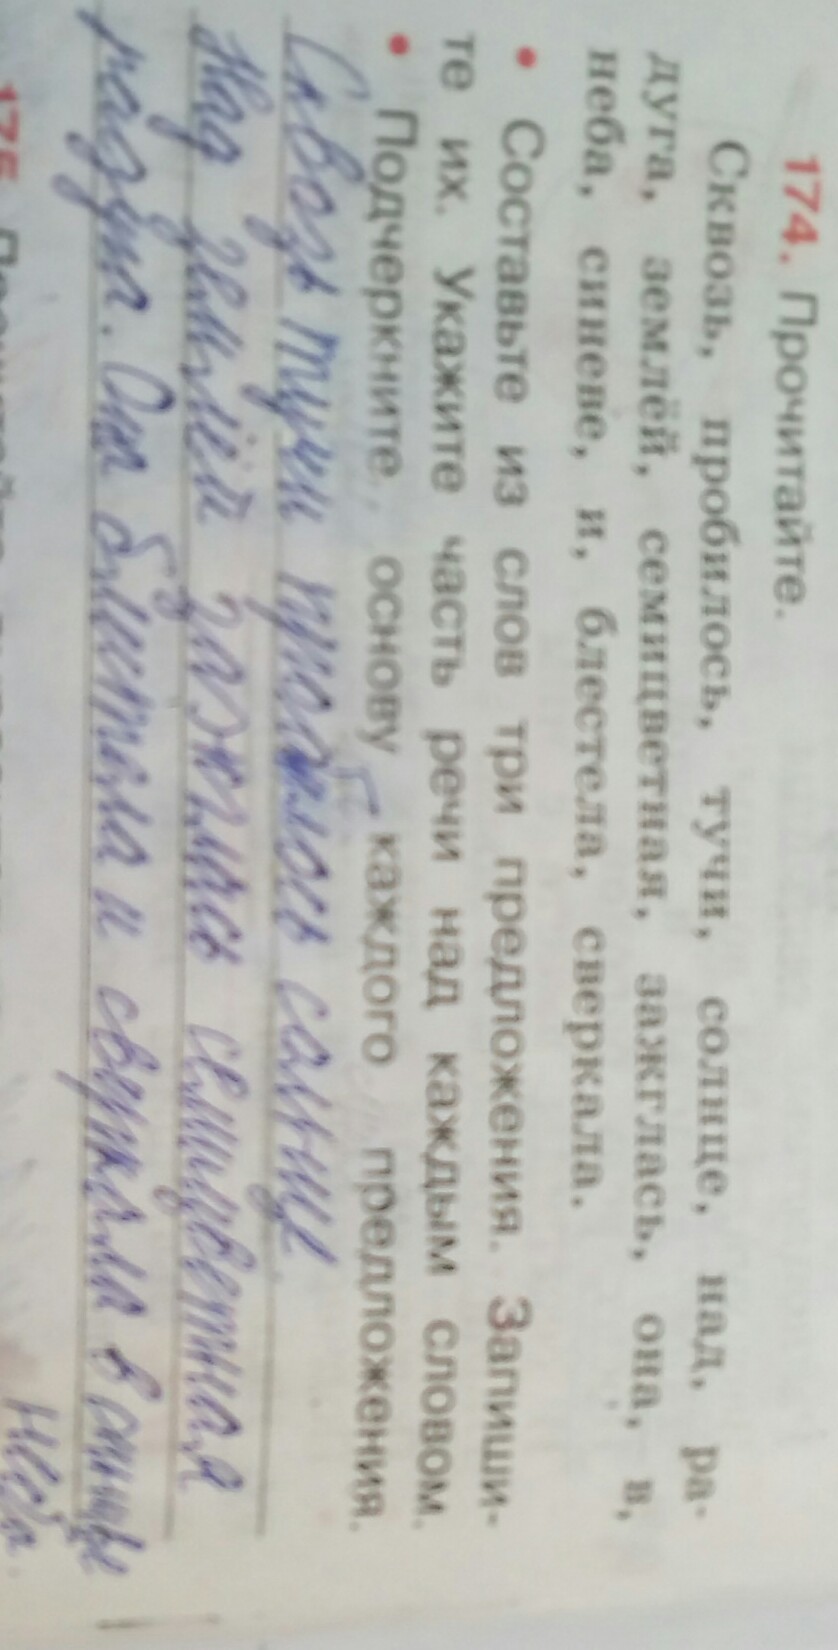 174. Прочитайте.
Сквозь, пробилось, тучи, солнце, над, ра-
дуга, землёй, семицветная, зажглась, она, в,
неба, синеве, и, блестела, сверкала.
• Составьте из слов три предложения. Запиши-
те их. Укажите часть речи над каждым словом.
• Подчеркните основу каждого предложения.
Сквозь тучи пробилось солнце.
Над землёй зажглась семицветная
радуга. Она блистела и сверкала в синеве
неба.
175.